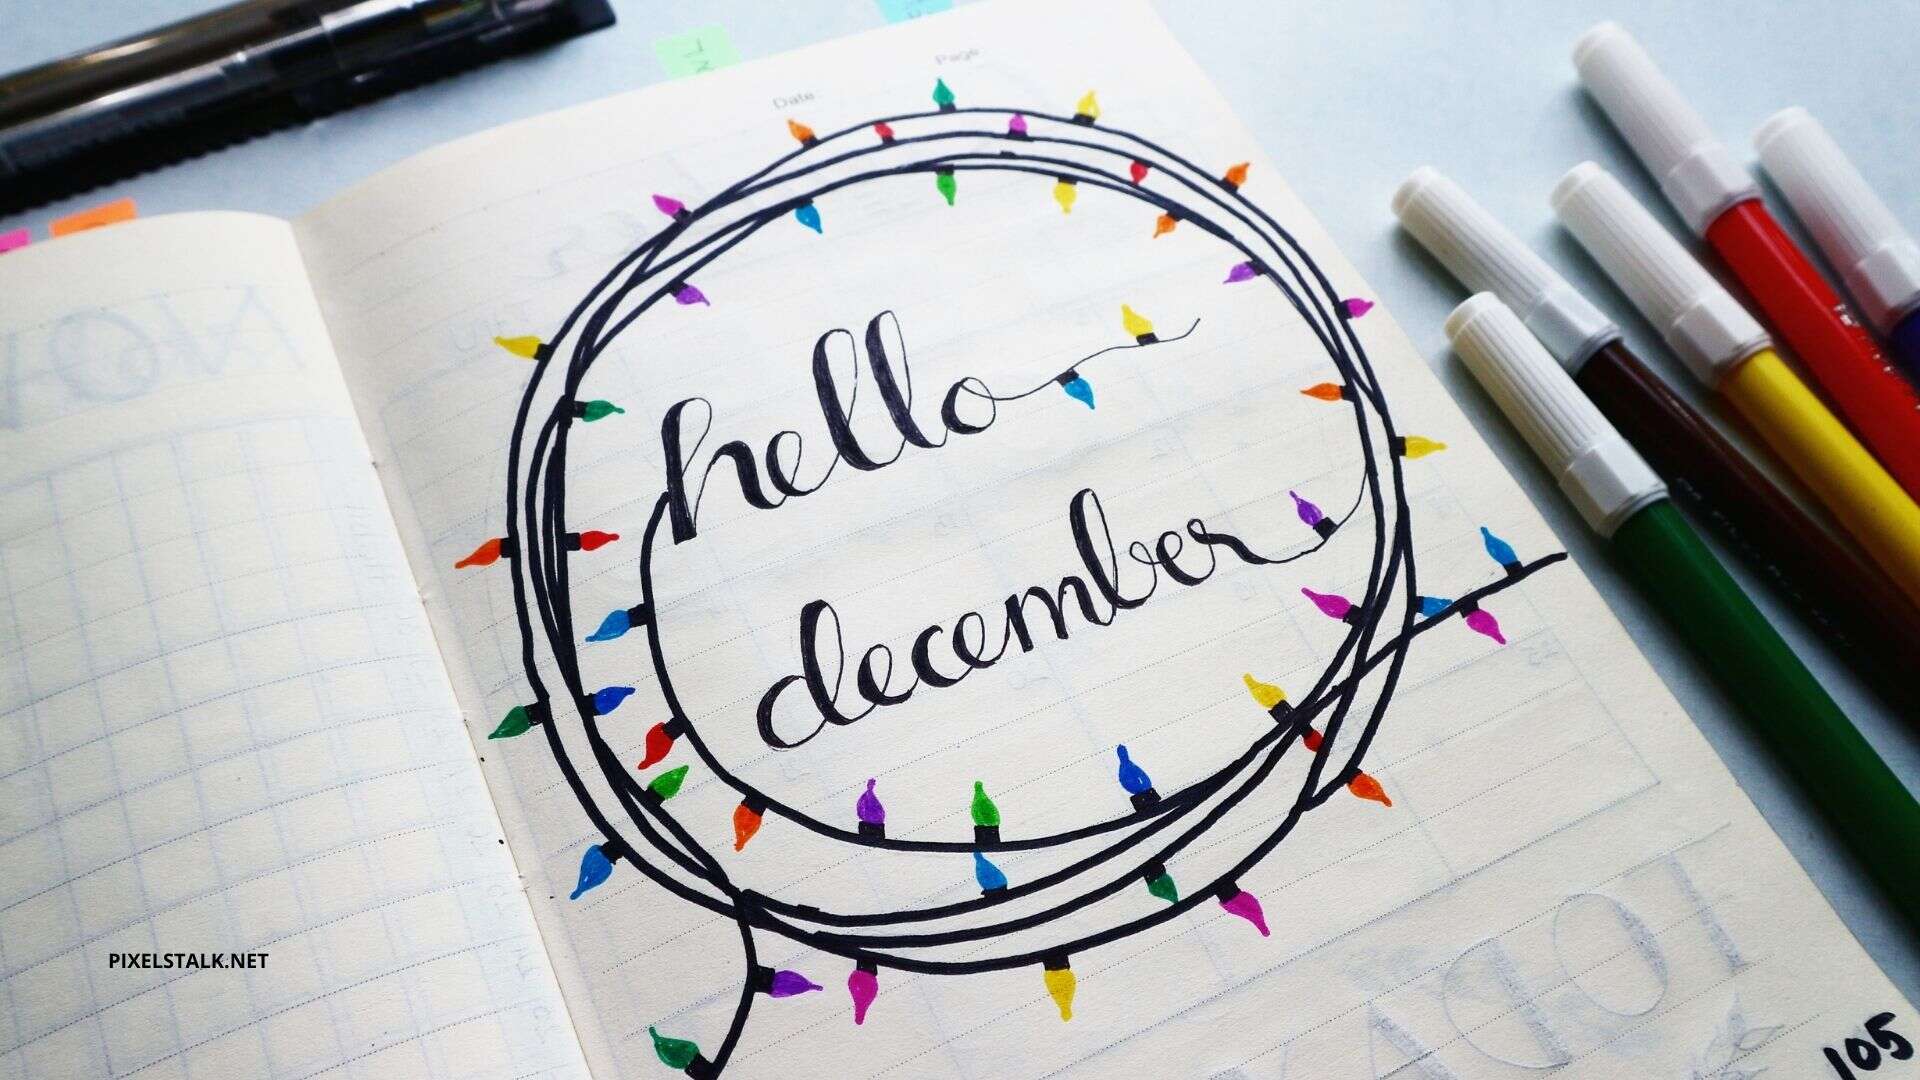 Date
Page
hello
december
PIXELSTALK.NET
105